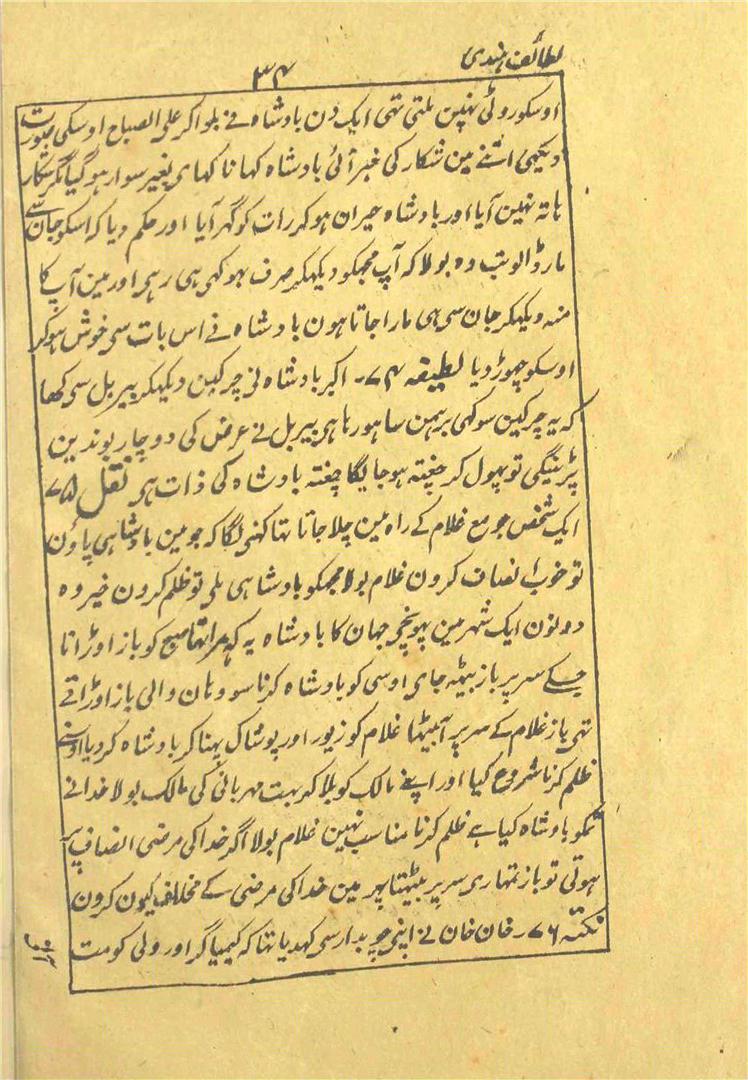 لطائف ہندی
۳۴
اوسکو روٹی نہین ملتی تہی ایک دن بادشاہ نے بلواکر علی الصباح اوسکی صورت
دیکھی اتنے مین شکار کی خبر آئی بادشاہ کہانا کہای بغیر سوار ہو گیا مگر شکار
ہاتہ نہین آیا اور بادشاہ حیران ہوکر رات کو گہر آیا اور حکم دیا کہ اسکو جان سے
مار ڈالو تب وہ بولا کہ آپ مجہکو دیکہکر صرف بہوکہی ہی رہی اور مین آپ کا
منہ دیکہکر جان سی ہی مارا جاتا ہون بادشاہ نے اس بات سی خوش ہو کر
اوسکو چہوڑ دیا لطیفہ ۷۴ - اکبر بادشاہ نی چرکین دیکہکر بیربل سی کہا
کہ یہ چرکین سوکہی برہمن سا ہو رہا ہی بیربل نے عرض کی دو چار بوندین
پڑینگی تو پہول کر چغتہ ہو جایگا چغتہ بادشاہ کی ذات ہی نقل ۷۵
ایک شخص جو مع غلام کے راہ مین چلا جاتا تہا کہنی لگا کہ جو مین بادشاہی پاؤن
تو خوب انصاف کرون غلام بولا مجہکو بادشاہی ملی تو ظلم کرون خیر وہ
دونون ایک شہر مین پہونچی جہان کا بادشاہ یہ کہ مرا تہا صبح کو باز اوڑانا
جسکے سر پر باز بیٹہ جای اوسی کو بادشاہ کرنا سو وہان والی باز اوڑاتے
تہی باز غلام کے سر پر آبیٹہا غلام کو زیور اور پوشاک پہنا کر بادشاہ کردیا اوسنے
ظلم کرنا شروع کیا اور اپنے مالک کو بلا کر بہت مہربانی کی مالک بولا خدا نے
تمکو بادشاہ کیا ہے ظلم کرنا مناسب نہین غلام بولا اگر خدا کی مرضی انصاف پر
ہوتی تو باز تمہاری سر پر بیٹہتا پہر مین خدا کی مرضی کے مخالف کیون کرون
نکتہ ۷۶ - خان خان نے اپنی چوبدار سی کہدیا تہا کہ کیمیاگر اور ولی کو مت